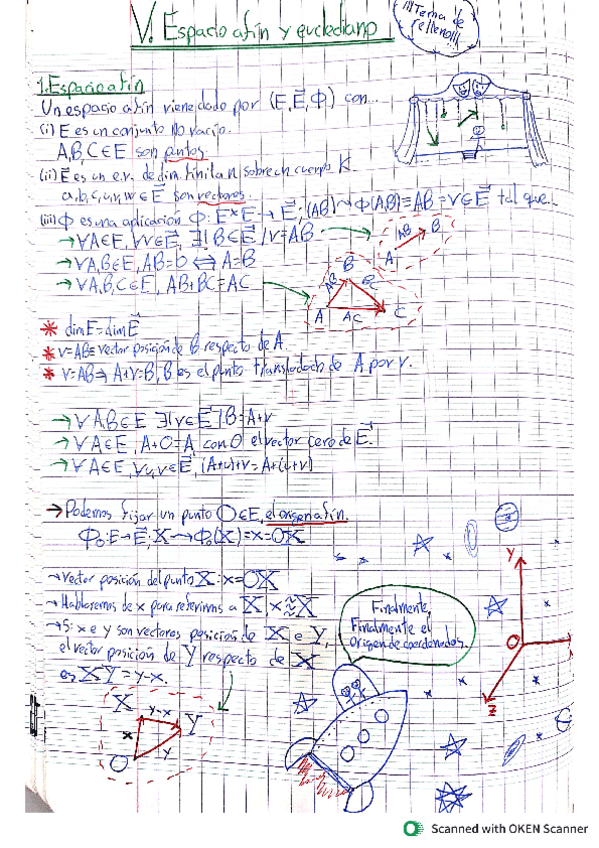 V. Espacio afín y euclediano
¡¡¡Tema de
relleno!!!
1. Espacio afín
Un espacio afín viene dado por (E, E⃗, Φ) con...
(i) E es un conjunto no vacío.
A,B,C∈E son puntos.
(ii) E⃗ es un e.v. de dim. finita n sobre un cuerpo K.
a,b,c,u,v,w∈E⃗ son vectores.
(iii) Φ es una aplicación Φ: E×E→E⃗; (A,B)⇝Φ(A,B)=AB=v∈E⃗ tal que...
→∀A∈E, ∀v∈E⃗, ∃!B∈E / v=AB
→∀A,B∈E, AB=0 ⟺ A=B
→∀A,B,C∈E, AB+BC=AC
AB
B
A
B
AB
BC
A
AC
C
* dimE=dimE⃗
* v=AB≡vector posición de B respecto de A.
* v=AB⇒A+v=B, B es el punto transladado de A por v.
→∀A,B∈E ∃!v∈E⃗ / B=A+v
→∀A∈E, A+0=A con 0 el vector cero de E⃗.
→∀A∈E, ∀u,v∈E⃗, (A+u)+v=A+(u+v)
→Podemos fijar un punto O∈E, el origen afín.
Φ₀:E→E⃗; X⇝Φ₀(X)=x=OX
→Vector posición del punto X: x=OX
→Hablaremos de x para referirnos a X x≈X
→Si x e y son vectores posiciones de X e Y,
el vector posición de Y respecto de X
es XY=y-x.
Finalmente,
Finalmente el
Origen de coordenadas.
Y
O
Z
X
y-x
Y
x
y
O
Scanned with OKEN Scanner